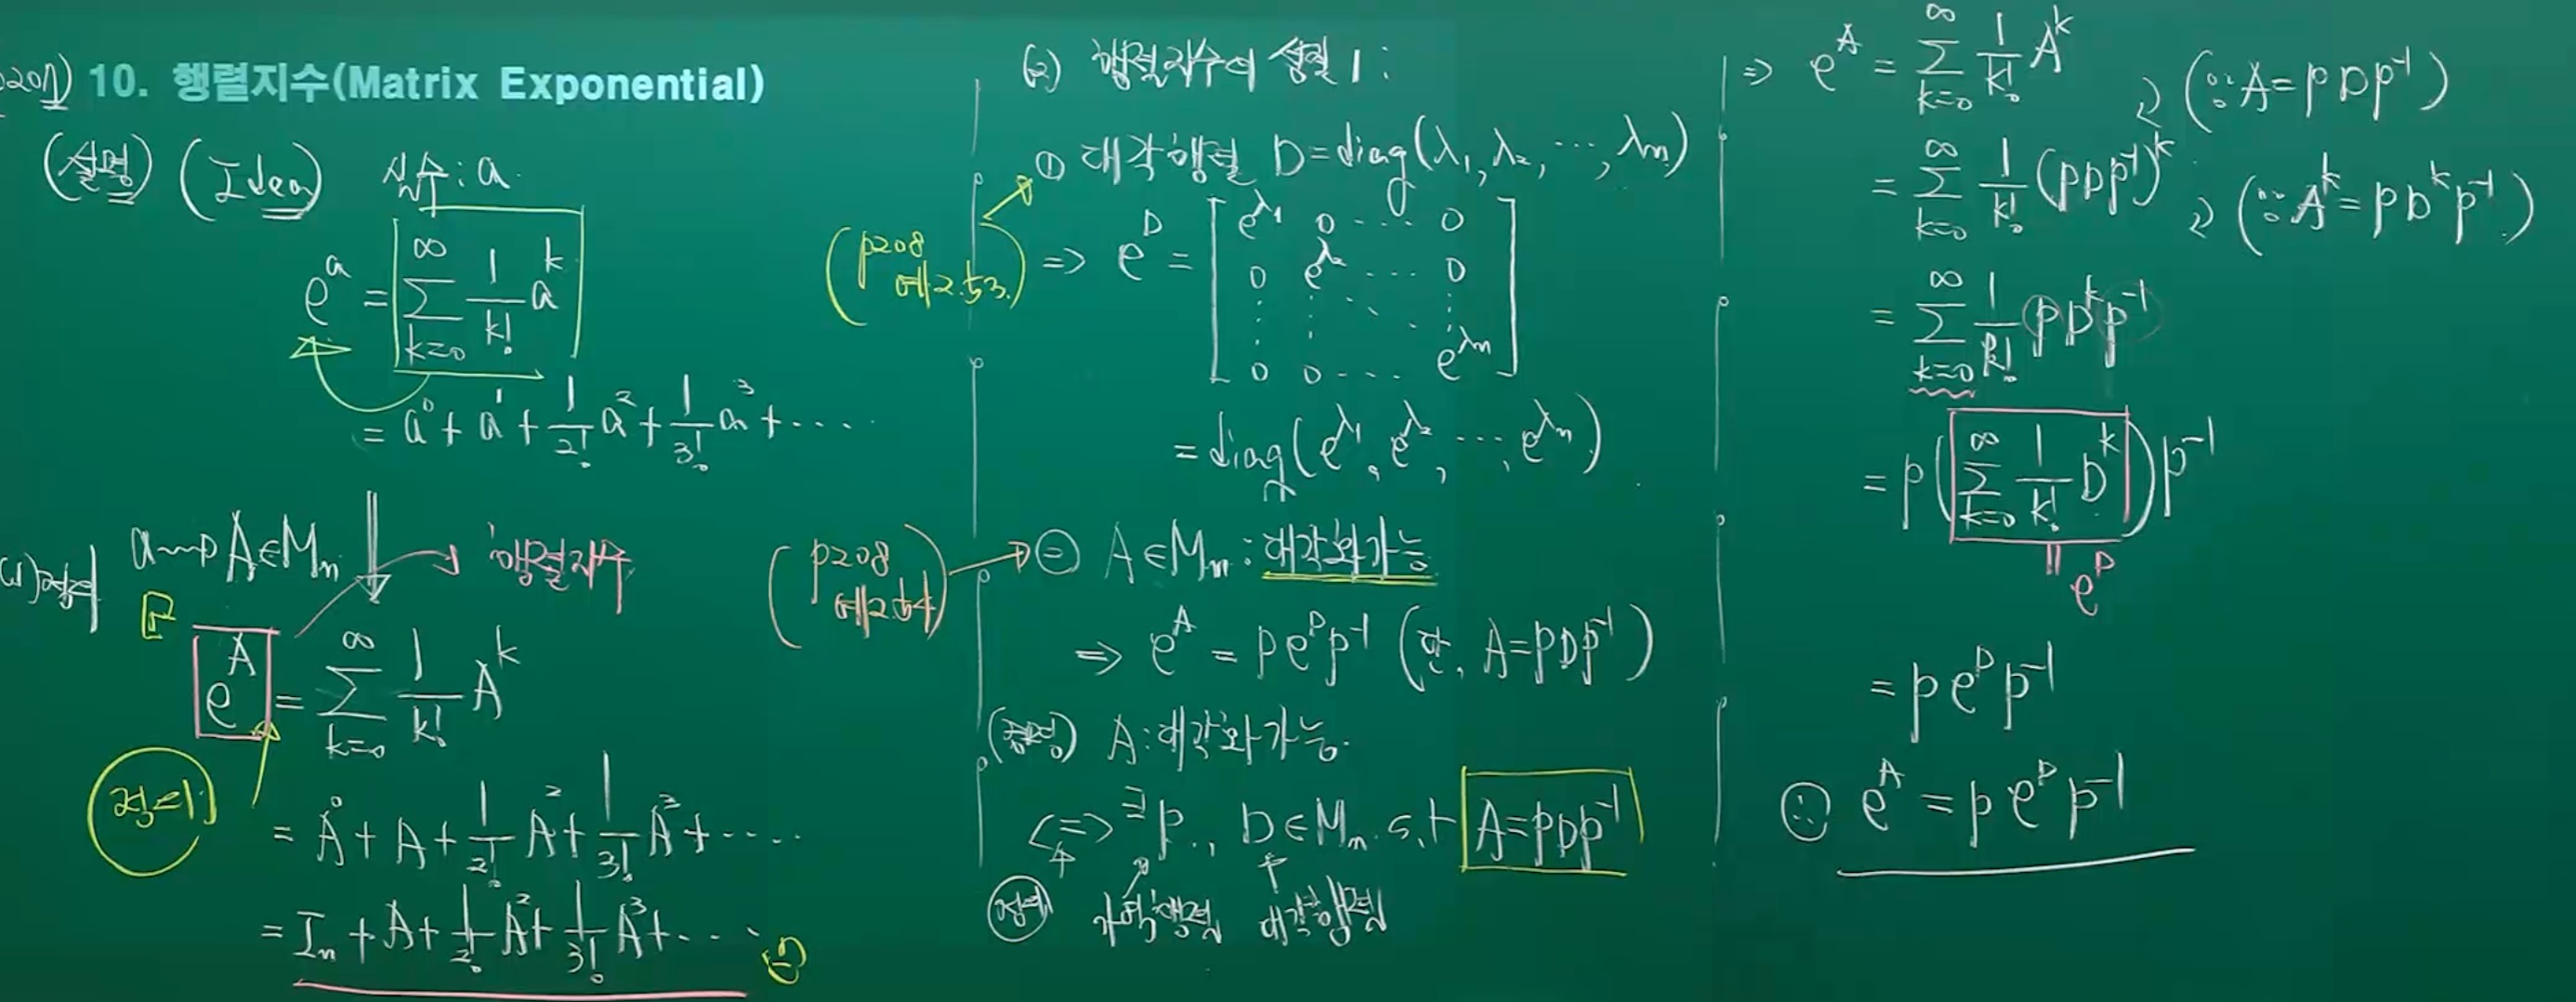 p207) 10. 행렬지수(Matrix Exponential)
(설명) (Idea) 실수: a
e^a = ∑_{k=0}^{∞} 1/k! a^k
= a^0 + a^1 + 1/2! a^2 + 1/3! a^3 + ····
(1) 정의 a ⇝ A∈M_n ⇓ 행렬지수
e^A = ∑_{k=0}^{∞} 1/k! A^k
정의
= A^0 + A + 1/2! A^2 + 1/3! A^3 + ····
= I_n + A + 1/2! A^2 + 1/3! A^3 + ····
(2) 행렬지수의 성질 1:
① 대각행렬 D = diag(λ_1, λ_2, ···, λ_n)
(p208 예2.53)
⇒ e^D = [ e^{λ_1} 0 ···· 0
0 e^{λ_2} ···· 0
⋮ ⋮ ⋱ ⋮
0 0 ···· e^{λ_n} ]
= diag(e^{λ_1}, e^{λ_2}, ···, e^{λ_n})
(p208 예2.54) → ② A∈M_n: 대각화가능
⇒ e^A = P e^D P^{-1} (단, A = PDP^{-1})
(증명) A: 대각화가능.
⇔ ∃P, D∈M_n s.t A = PDP^{-1}
정의 가역행렬 대각행렬
⇒ e^A = ∑_{k=0}^{∞} 1/k! A^k
(∵ A = PDP^{-1})
= ∑_{k=0}^{∞} 1/k! (PDP^{-1})^k
(∵ A^k = PD^kP^{-1})
= ∑_{k=0}^{∞} 1/k! PD^kP^{-1}
= P(∑_{k=0}^{∞} 1/k! D^k)P^{-1}
= e^D
= P e^D P^{-1}
∴ e^A = P e^D P^{-1}